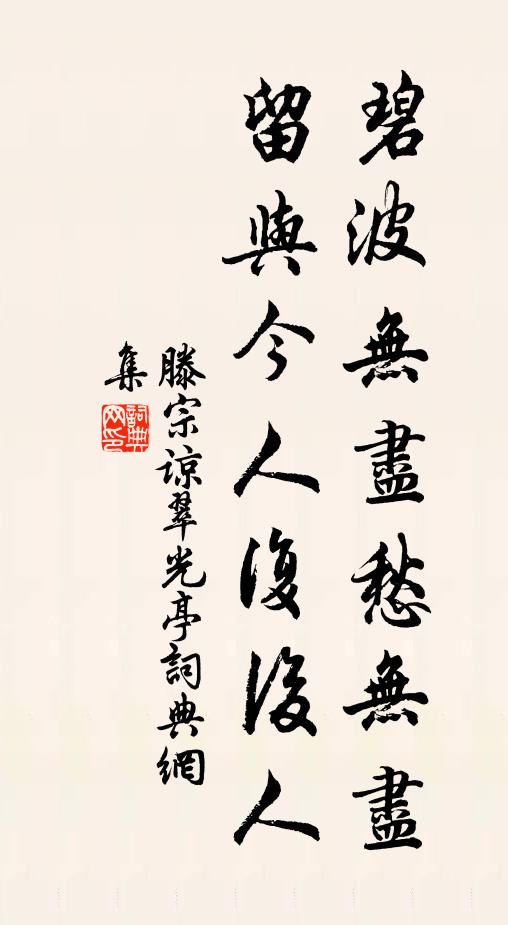 碧波無盡愁無盡
留與今人復後人
滕宗諒翠光亭詞典網
集
詞典网印